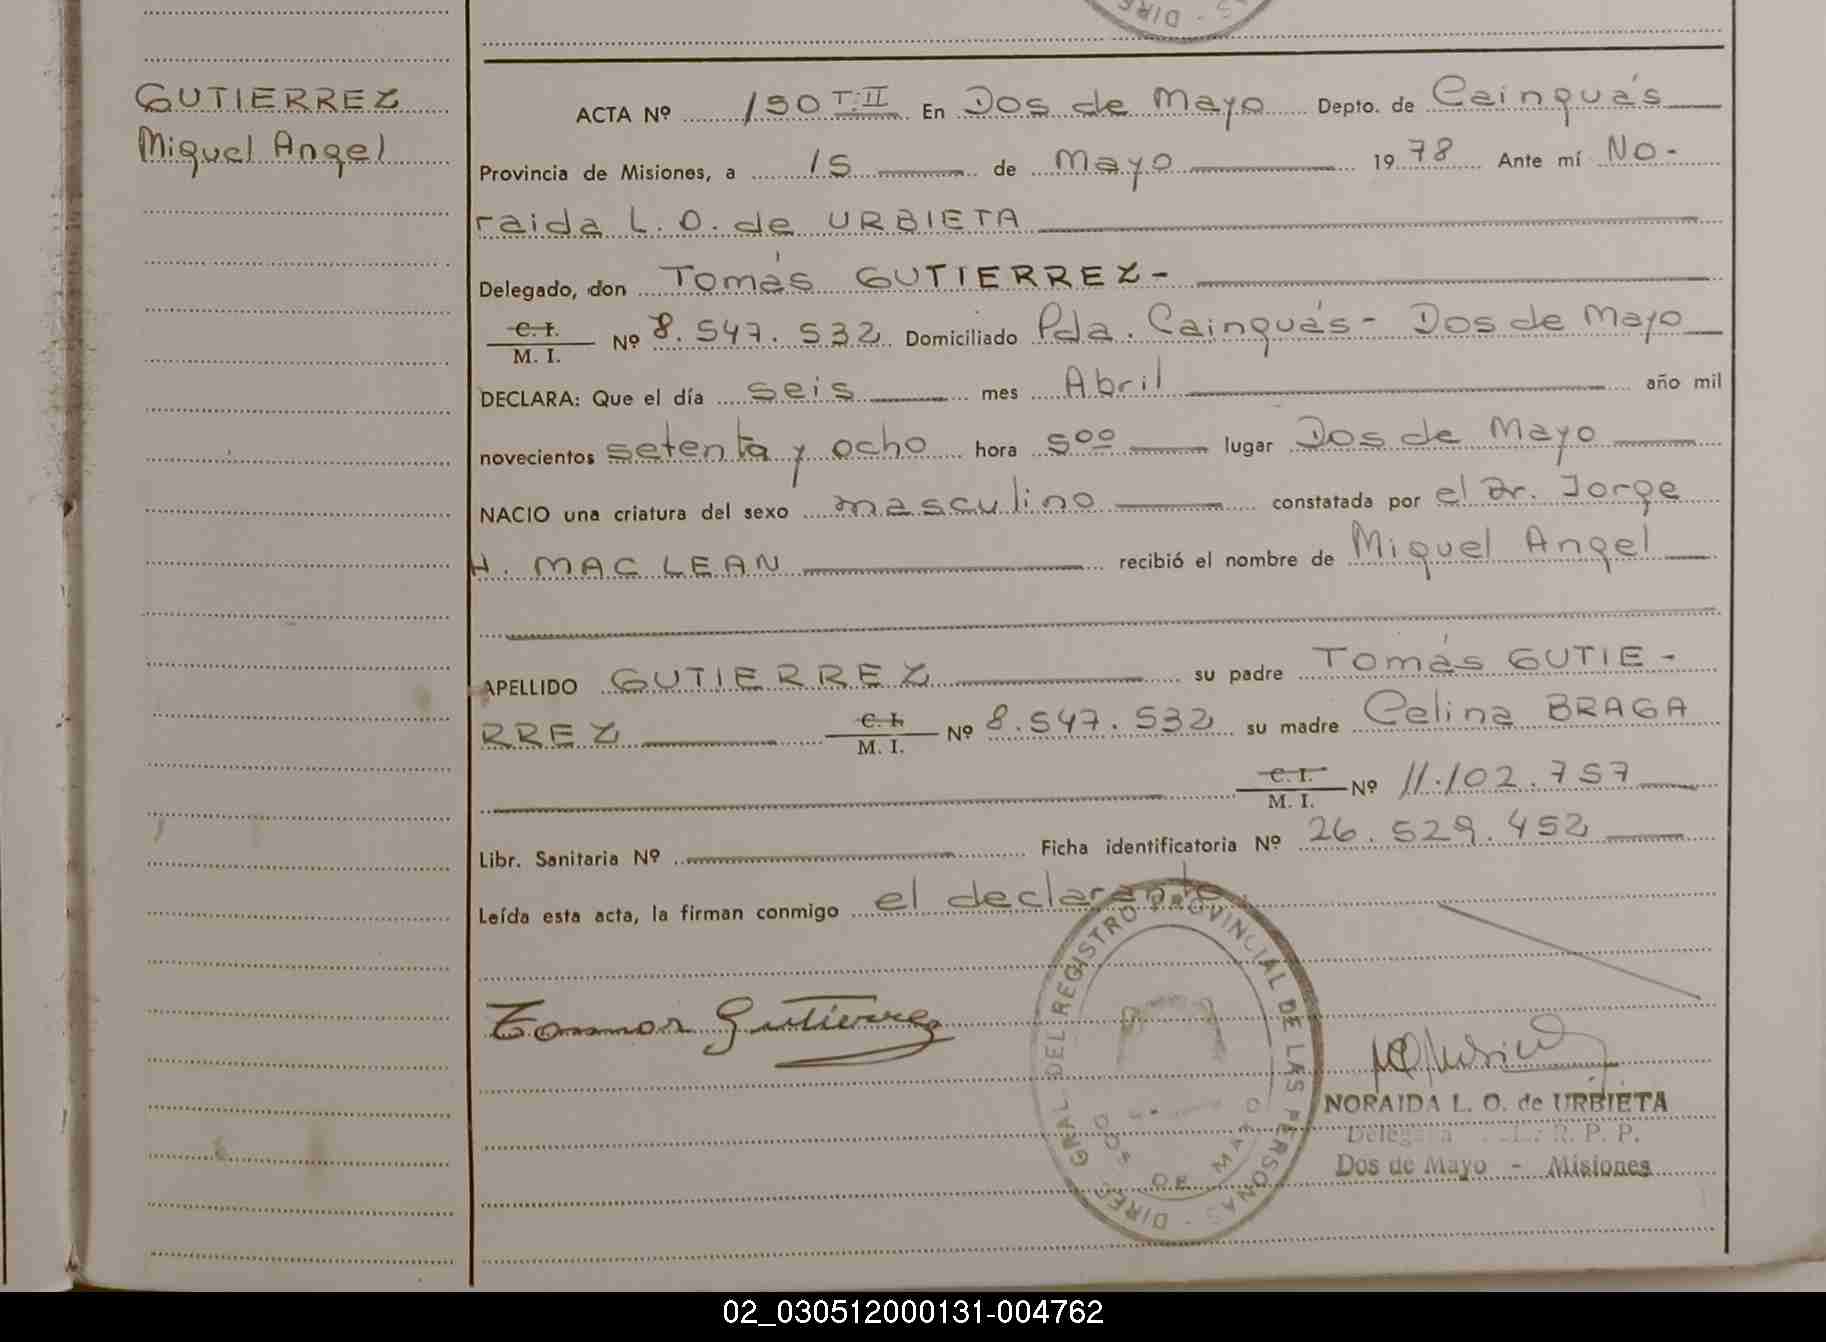 S - DIRE
GUTIERREZ
Miguel Angel
ACTA Nº 190 T:II En Dos de Mayo Depto. de Cainguás
Provincia de Misiones, a 15 de Mayo 1978 Ante mí No-
raida L. O. de URBIETA
Delegado, don Tomás GUTIERREZ-
C. I. / M. I. Nº 8.547.532 Domiciliado Pda. Cainguás - Dos de Mayo
DECLARA: Que el día seis mes Abril año mil
novecientos setenta y ocho hora 5⁰⁰ lugar Dos de Mayo
NACIO una criatura del sexo masculino constatada por el Dr. Jorge
H. MAC LEAN recibió el nombre de Miguel Angel
APELLIDO GUTIERREZ su padre Tomás GUTIE-
RREZ C. I. / M. I. Nº 8.547.532 su madre Celina BRAGA
C. I. / M. I. Nº 11.102.757
Libr. Sanitaria Nº Ficha identificatoria Nº 26.529.452
Leída esta acta, la firman conmigo el declarante
Tommas Gutierrez
DIREC. GRAL. DEL REGISTRO PROVINCIAL DE LAS PERSONAS
DOS DE MAYO
NORAIDA L. O. de URBIETA
Delegada R. P. P.
Dos de Mayo - Misiones
02_030512000131-004762